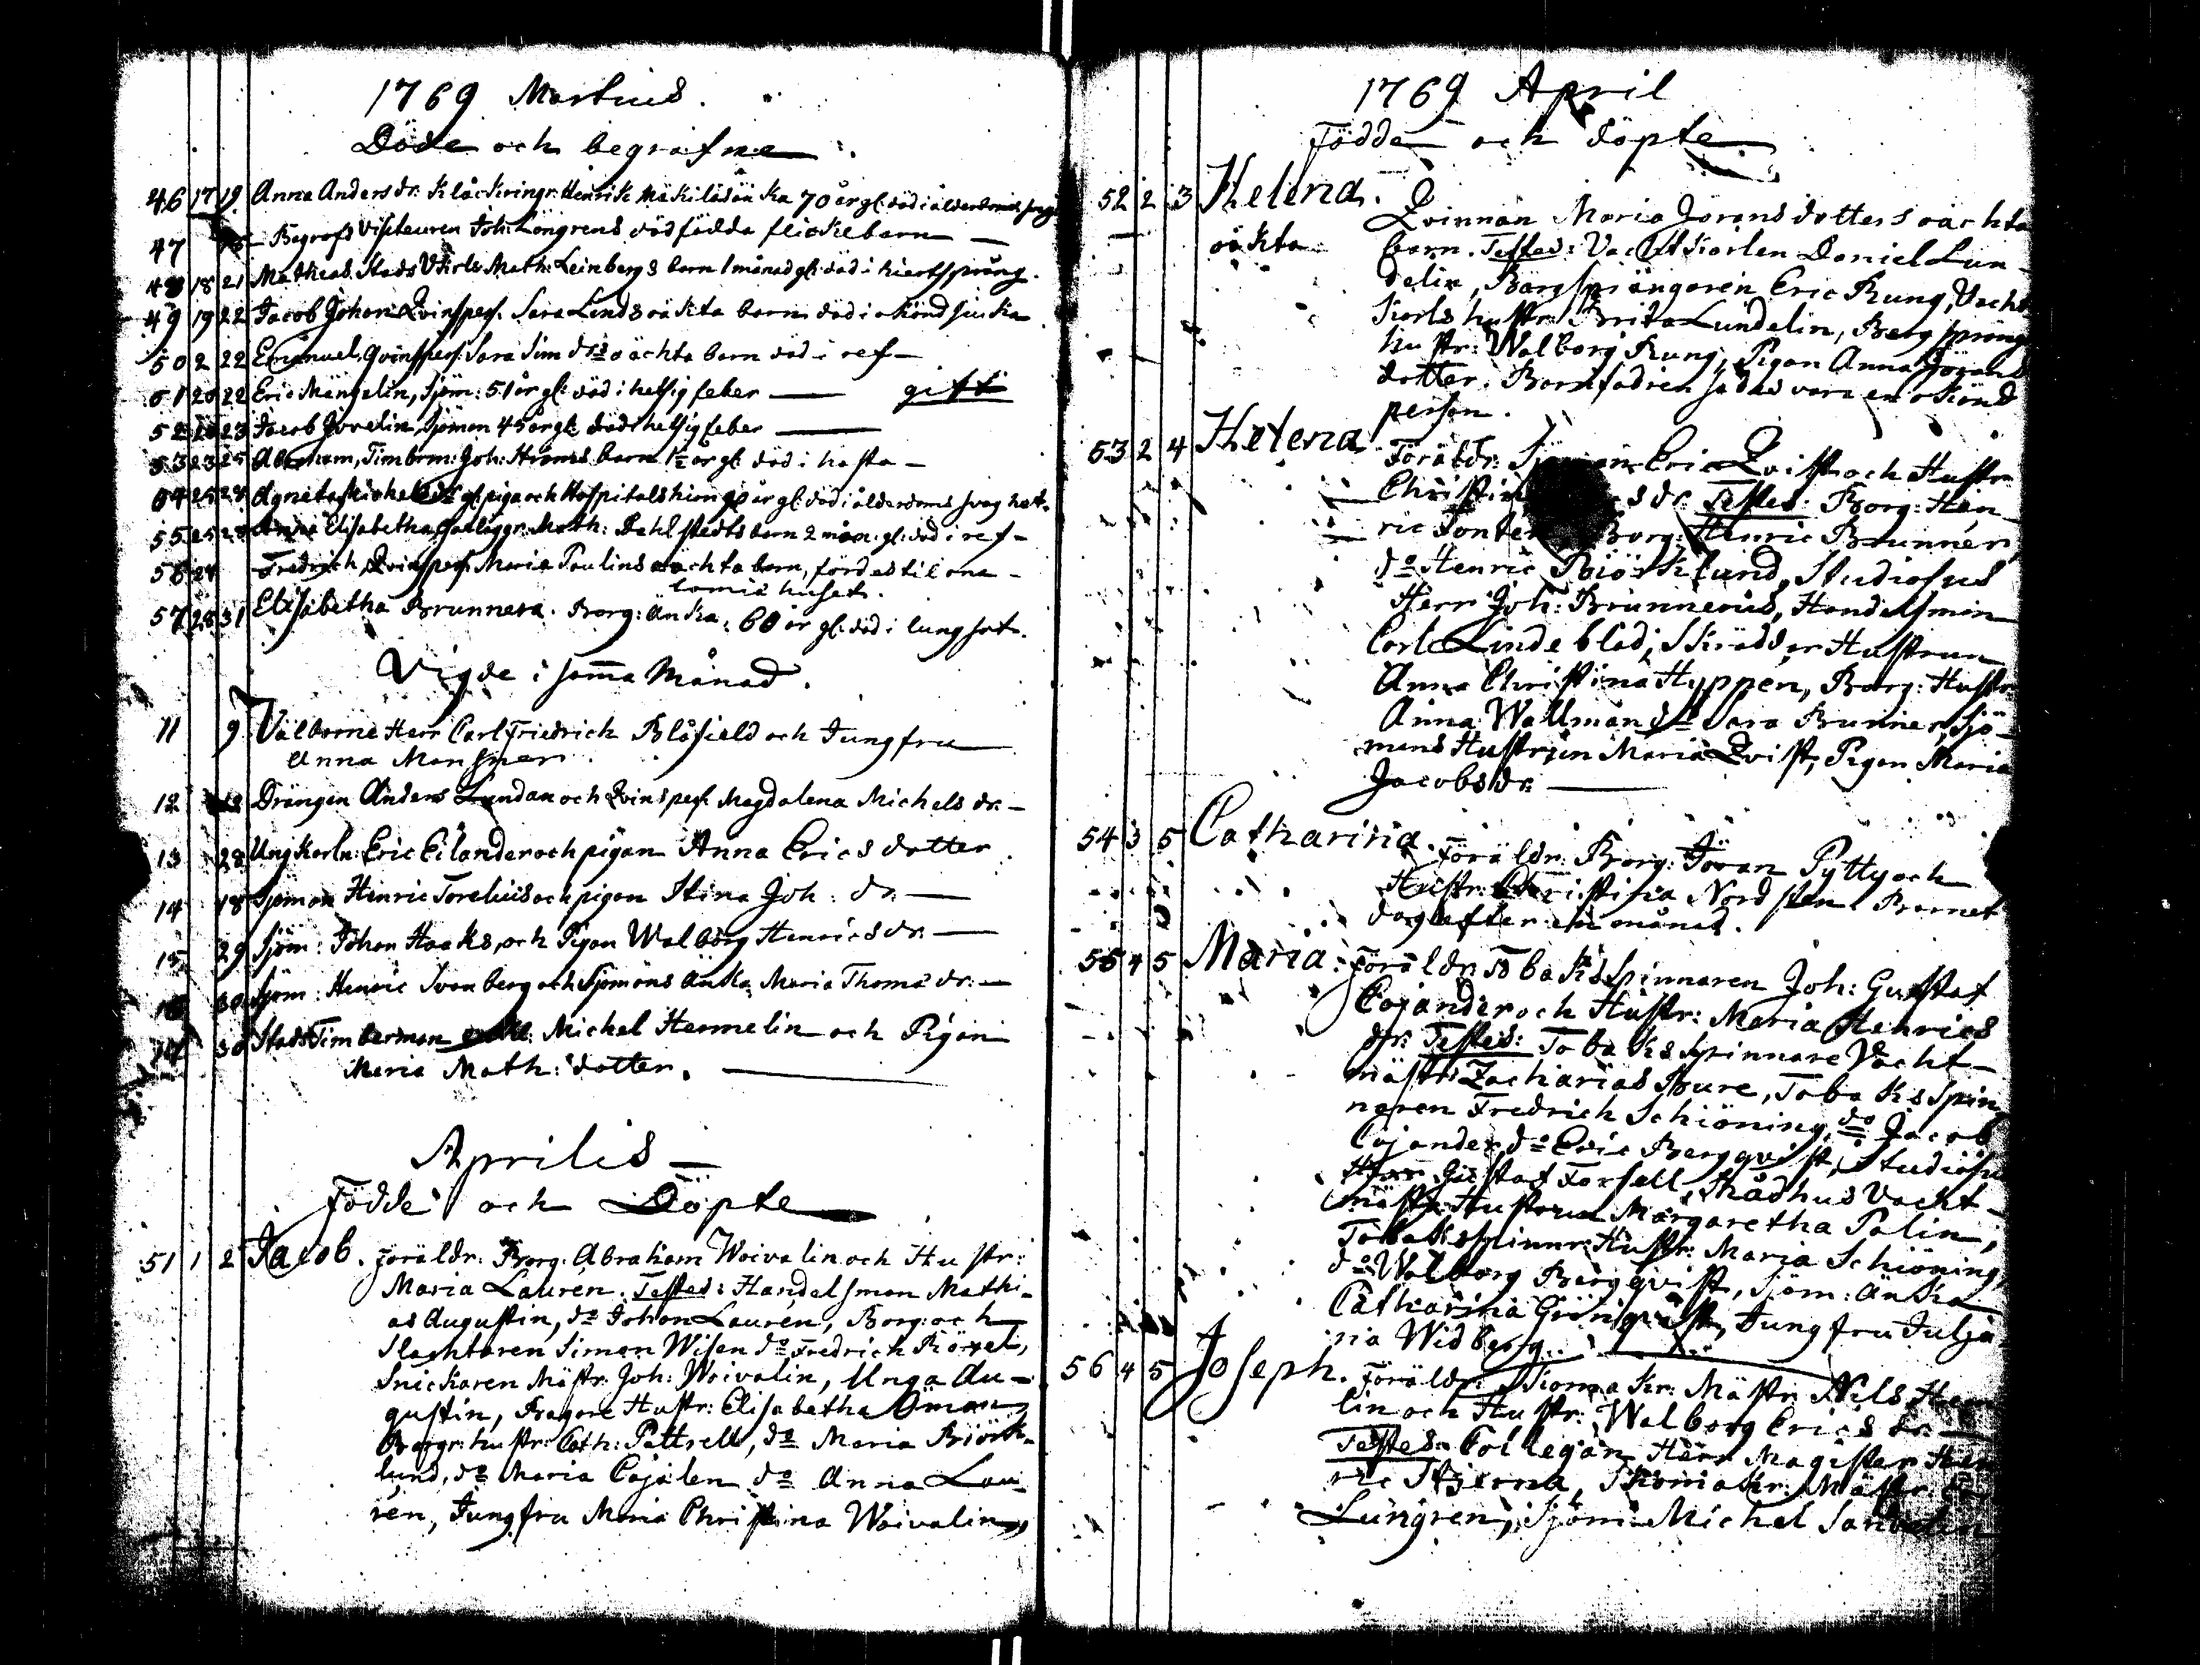 1769 Martius.
Döde och begrafne
46 17 19 Anna Anders dr. Klåckringr. Henrik Mäkiläs änka 70 år gl. död i ålderdoms
47 Begrofs Visiteuren Joh: Löngrens dödfödda flickebarn —
48 18 21 Mathias. Stads Math: Leinbergs barn 1 månad gl: död i hiertsprång.
49 19 22 Jacob Johan Qvinspers. Sara Linds oäkta barn död i okönd siuka
50 2 22 Emanuel, Qvinspers: Sara Sim drs oächta barn död i ref —
51 20 22 Eric Mängelin, Sjöm: 51 år gl: död i hetsig feber — gift
52 20 23 Jacob Juvelin, Sjöman 45 år gl. död i hetsig feber —
53 23 25 Abraham, Timbrm: Joh: Ströms barn 1½ år gl. död i hosta —
54 25 28 Agneta Michels dr gl. piga och Hospitalshion år gl: död i ålderdoms svaghet.
55 25 28 Anna Elisabetha, Math: Dahlstedts barn 2 mån. gl: död i ref —
56 24 Fredrich, Qvinspers. Maria Paulins oächta barn, fördes til ana-
tomiæ huset.
57 28 31 Elisabetha Brunnera. Borg: änka, 60 år gl: död i lungsot.
Vigde i samma Månad.
11 9 Välborne Herr Carl Friedrich Blåfield och Jungfru
Anna Mansner.
12 Drängen Anders Lundan och Qvinspers. Magdalena Michels dr. —
13 28 Ung Karln: Eric Eilander och pigan Anna Erics dotter.
14 18 Sjöman Henric Torelius och pigan Stina Joh: dr. —
15 29 Sjöm: Johan Haaks, och Pigan Walborg Henrics dr. —
16 30 Sjöm: Henric Svanberg och Sjömans änka Maria Thomæ dr. —
17 30 Stads Timberman Michel Hermelin och Pigan
Maria Math: dotter. —
Aprilis —
Födde och Döpte
51 1 2 Jacob. Föräldr: Borg: Abraham Woivalin och Hustr:
Maria Laurén. Testes: Handelsman Mathi-
as Augustin, do Johan Laurén, Borg: och
Slachtaren Simon Wisen do Fredrich Kiörel,
Snickaren Mästr. Joh: Woivalin, Unga Au-
gustin, Bagare Hustr: Elisabetha Öman
Borgr: hustr: Cath: Pettrell, do Maria Biörk-
lund, do Maria Cajalen do Anna Lau-
rén, Jungfru Maria Christina Woivalin,
1769 April
Födde och döpte
52 2 3 Helena. Qvinnan Maria Jörans dotters oächta
oäkta barn. Testes: Vachtkarlen Daniel Lun-
delin, Bärgsprängaren Eric Rung, Vacht
Karls hustr: Brita Lundelin, Bergspräng
hustr: Walborg Rung, Pigan Anna Görans
dotter. Barnfadren sades vara en okönd
person.
53 2 4 Helena Föräldr: Eric Qvist och Hustr
s dr. Testes: Borg: Hen-
ric Borg: Henric Brunner,
do Henric Biörklund, Studiosus
Herr Joh: Brunnerus, Handelsman
Carl Lindeblad, Skräddar Hustrun
Anna Christina Hyppén, Borg: Hustr
Anna Wallman do Sara Brunner, Sjö-
mans Hustrun Maria Qvist, Pigan Maria
Jacobs dr. —
54 3 5 Catharina. Föräldr: Borg: Jöran Pytty och
Hustr: Christina Nordsten. Barnet
dog efter en månad.
55 4 5 Maria. Föräldr: Tobaksspinnaren Joh: Gustaf
Cajander och Hustr: Maria Henrics
dr: Testes: Tobaksspinnare Vacht-
mästr: Zacharias Bure, Tobaksspin
naren Fredrich Schiöning, do Jacob
Cajander, do Eric Bergqvist, Studiosus
Herr Gustaf Forsell, Rådhus Vacht-
mäst: Hustrun Margaretha Palin,
Tobaksspinnr: Hustr: Maria Schiöning,
do Walborg Bergqvist, Sjöm: änka
Catharina Grönqvist, Jungfru Julja-
na Widberg.
56 4 5 Joseph. Föräldr: Skomakr: Mästr: Nils
lin och Hustr: Walborg Erics dr. —
Testes: Collegan Herr Magister Hen
ric Stjerna, Skomakr: Mästr:
Lungren, Sjöm: Michel